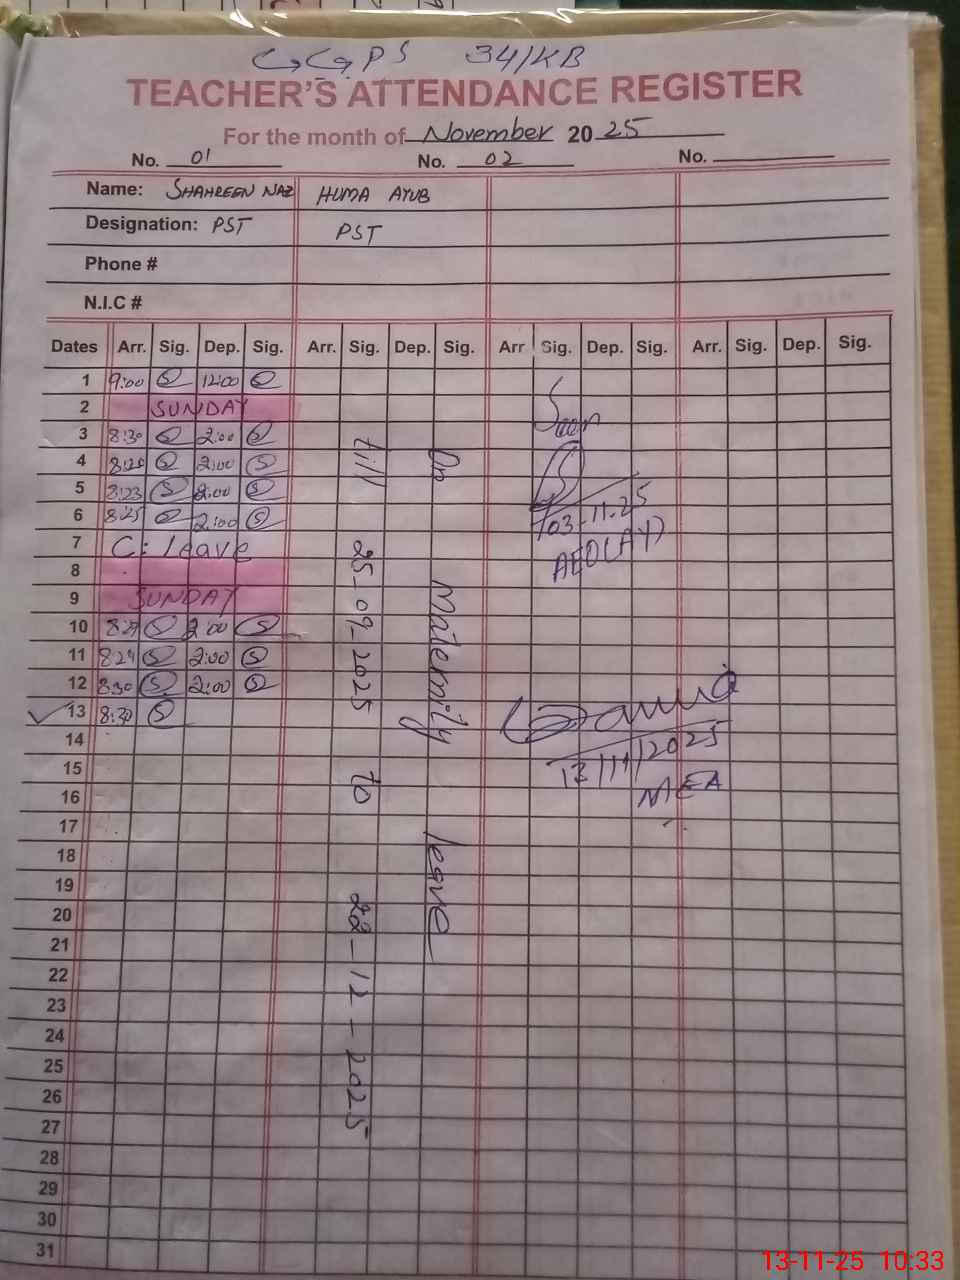 GGPS 34/KB
TEACHER'S ATTENDANCE REGISTER
For the month of November 20 25
No. 01 No. 02 No.
Name: SHAHREEN NAZ HUMA AYUB
Designation: PST PST
Phone #
N.I.C #
Dates Arr. Sig. Dep. Sig. Arr. Sig. Dep. Sig. Arr Sig. Dep. Sig. Arr. Sig. Dep. Sig.
1 9:00 12:00
2 SUNDAY
3 8:30 2:00
4 2:00
5 8:23 2:00
6 8:25 2:00
7 C: leave
8
9 SUNDAY
10 2:00
11 8:29 2:00
12 8:30 2:00
13 8:30
14
15
16
17
18
19
20
21
22
23
24
25
26
27
28
29
30
31
On Maternity leave
till 25-09-2025 to 22-12-2025
Seen
03-11-25
AEO(AY)
13/11/2025
MEA
13-11-25 10:33